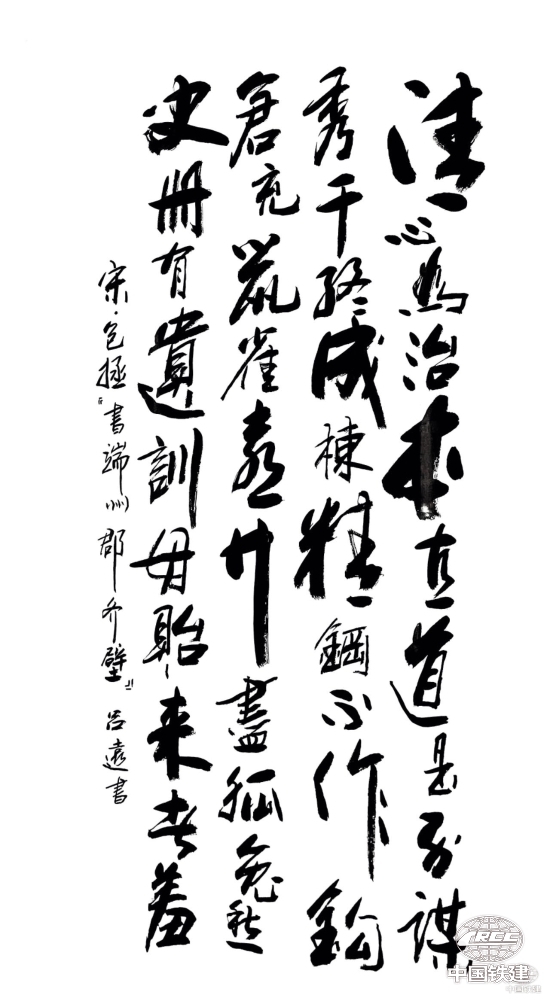 清心為治本直道是身謀
秀干終成棟精鋼不作鈎
倉充鼠雀喜草盡狐兔愁
史册有遺訓毋貽来者羞
宋·包拯『書端州郡齐壁』吕遠書
CRCC
中国铁建
中国铁建